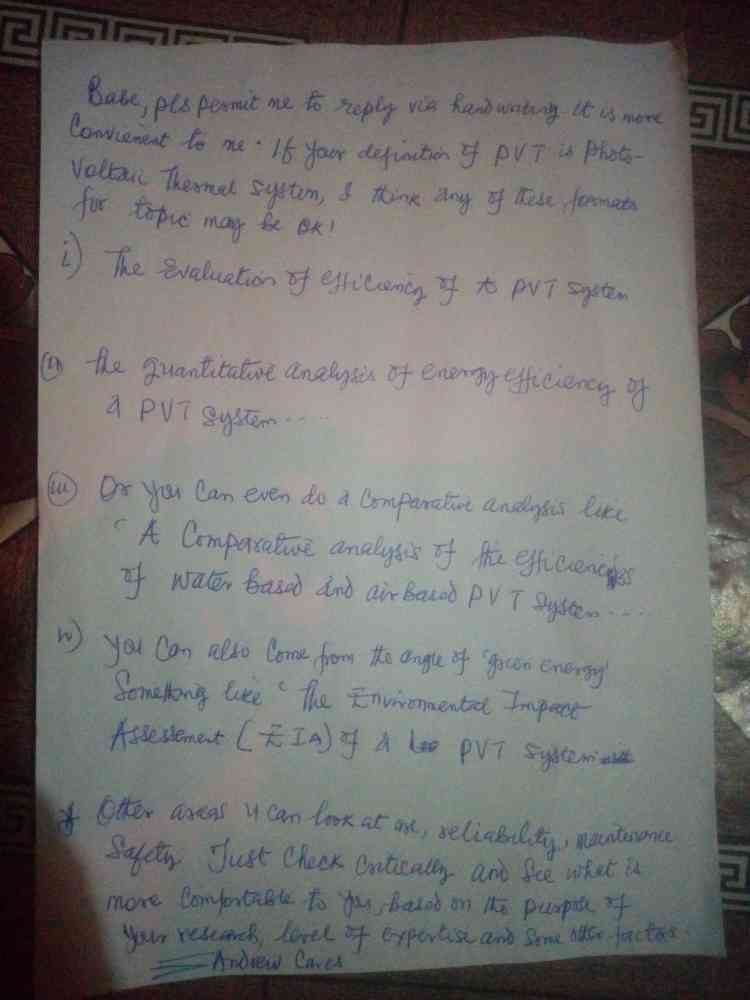 Babe, pls permit me to reply via handwriting. It is more
Convienent to me. If your definition of PVT is Photo-
Voltaic Thermal System, I think any of these formats
for topic may be OK!
i) The Evaluation of efficiency of a PVT System
(ii) The quantitative analysis of energy efficiency of
a PVT System....
(iii) Or you can even do a comparative analysis like
' A Comparative analysis of the efficiencies
of water based and air based PVT System....
iv) you can also come from the angle of 'green energy'
Something like ' The Environmental Impact
Assessement (EIA) of a PVT System
Other areas u can look at are, reliability, maintenance
Safety. Just check critically and see what is
more comfortable to you, based on the purpose of
your research, level of expertise and some other factors.
Andrew Cares